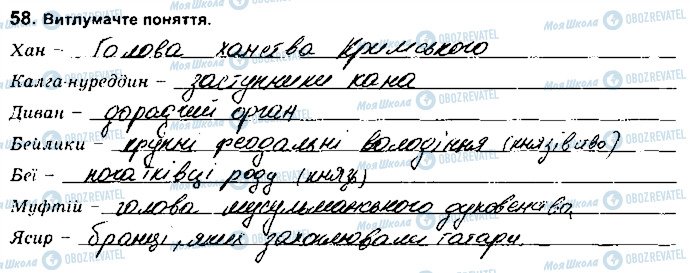 58. Витлумачте поняття.
Хан – Голова ханства Кримського
Калга-нуреддин – заступники хана
Диван – дорадчий орган
Бейлики – крупні феодальні володіння (князівство)
Беї – роду (князь)
Муфтій – голова мусульманського духовенства
Ясир – бранці, яких захоплювали татари.